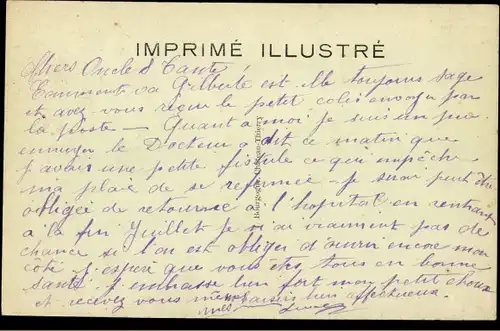 IMPRIMÉ ILLUSTRÉ
Chers Oncle & Tante
Comment va Gilberte est elle toujours sage
et avez vous reçu le petit colis envoyer par
la poste — Quant a moi je suis un peu
ennuyer le Docteur a dit ce matin que
j'avais une petite fistule ce qui empêche
ma plaie de se refermer — Je serai peut être
obligée de retourner à l'hopital en rentrant
à la fin Juillet je n'ai vraiment pas de
chance si l'on est obliger d'ouvrir encore mon
coté J'espère que vous êtes tous en bonne
santé J'embrasse bien fort mon petit choux
et recevez vous mes baisers bien affectueux.
Bourgogne, Château-Thierry